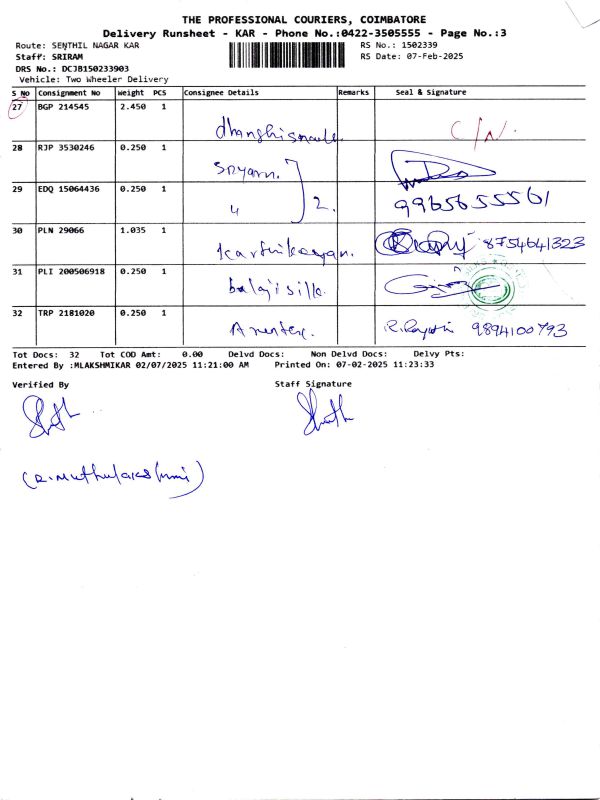 THE PROFESSIONAL COURIERS, COIMBATORE
Delivery Runsheet - KAR - Phone No.:0422-3505555 - Page No.:3
Route: SENTHIL NAGAR KAR
RS No.: 1502339
Staff: SRIRAM
RS Date: 07-Feb-2025
DRS No.: DCJB150233903
Vehicle: Two Wheeler Delivery
S No Consignment No Weight PCS Consignee Details Remarks Seal & Signature
27 BGP 214545 2.450 1
28 RJP 3530246 0.250 1
29 EDQ 15064436 0.250 1 " 2. 9965655561
30 PLN 29066 1.035 1 Karthikeyan. 8754641323
31 PLI 200506918 0.250 1 balaji silk.
32 TRP 2181020 0.250 1 9894100793
Tot Docs: 32 Tot COD Amt: 0.00 Delvd Docs: Non Delvd Docs: Delvy Pts:
Entered By :MLAKSHMIKAR 02/07/2025 11:21:00 AM Printed On: 07-02-2025 11:23:33
Verified By Staff Signature
(R.Muthulakshmi)